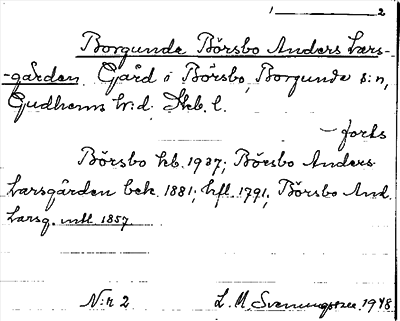 1 2
Borgunda Börsbo Anders Lars-
-gården. Gård i Börsbo, Borgunda s:n,
Gudhems h:d. Skb. l.
– forts
Börsbo kb. 1937; Börsbo Anders
Larsgården bek. 1881; hfl. 1791; Börsbo And.
Larsg. mtl. 1857.
N:r 2 L. M. Svenungsson 1948.